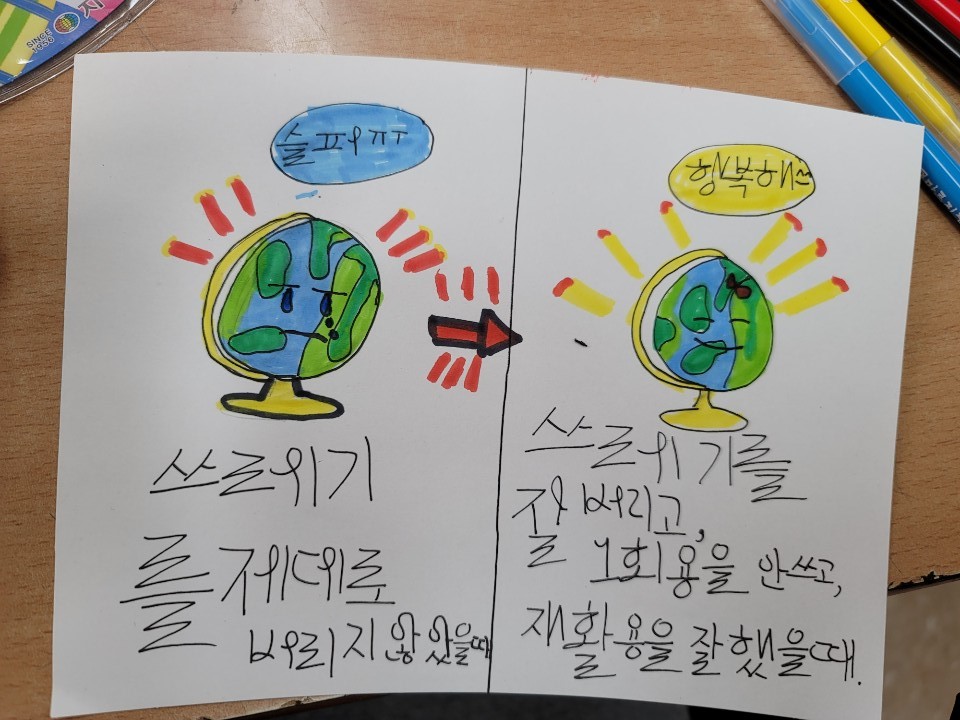 슬퍼ㅠㅜ
쓰레기
를 제대로
버리지 않았을때
행복해^^
쓰레기를
잘 버리고,
1회용을 안쓰고,
재활용을 잘했을때.
SINCE
1956
지